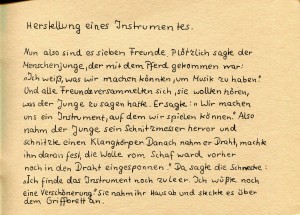 Herstellung eines Instrumentes.
Nun also sind es sieben Freunde. Plötzlich sagte der
Menschenjunge, der mit dem Pferd gekommen war:
„Ich weiß, was wir machen könnten, um Musik zu haben."
Und alle Freunde versammelten sich, sie wollten hören,
was der Junge zu sagen hatte. Er sagte: „Wir machen
uns ein Instrument, auf dem wir spielen können." Also
nahm der Junge sein Schnitzmesser hervor und
schnitzte einen Klangkörper. Danach nahm er Draht, machte
ihn daran fest, die Wolle vom Schaf ward vorher
noch in den Draht eingesponnen." Da sagte die Schnecke:
„Ich finde das Instrument noch zu leer. Ich wüßte noch
eine Verschönerung." Sie nahm ihr Haus ab und steckte es über
dem Griffbrett an.